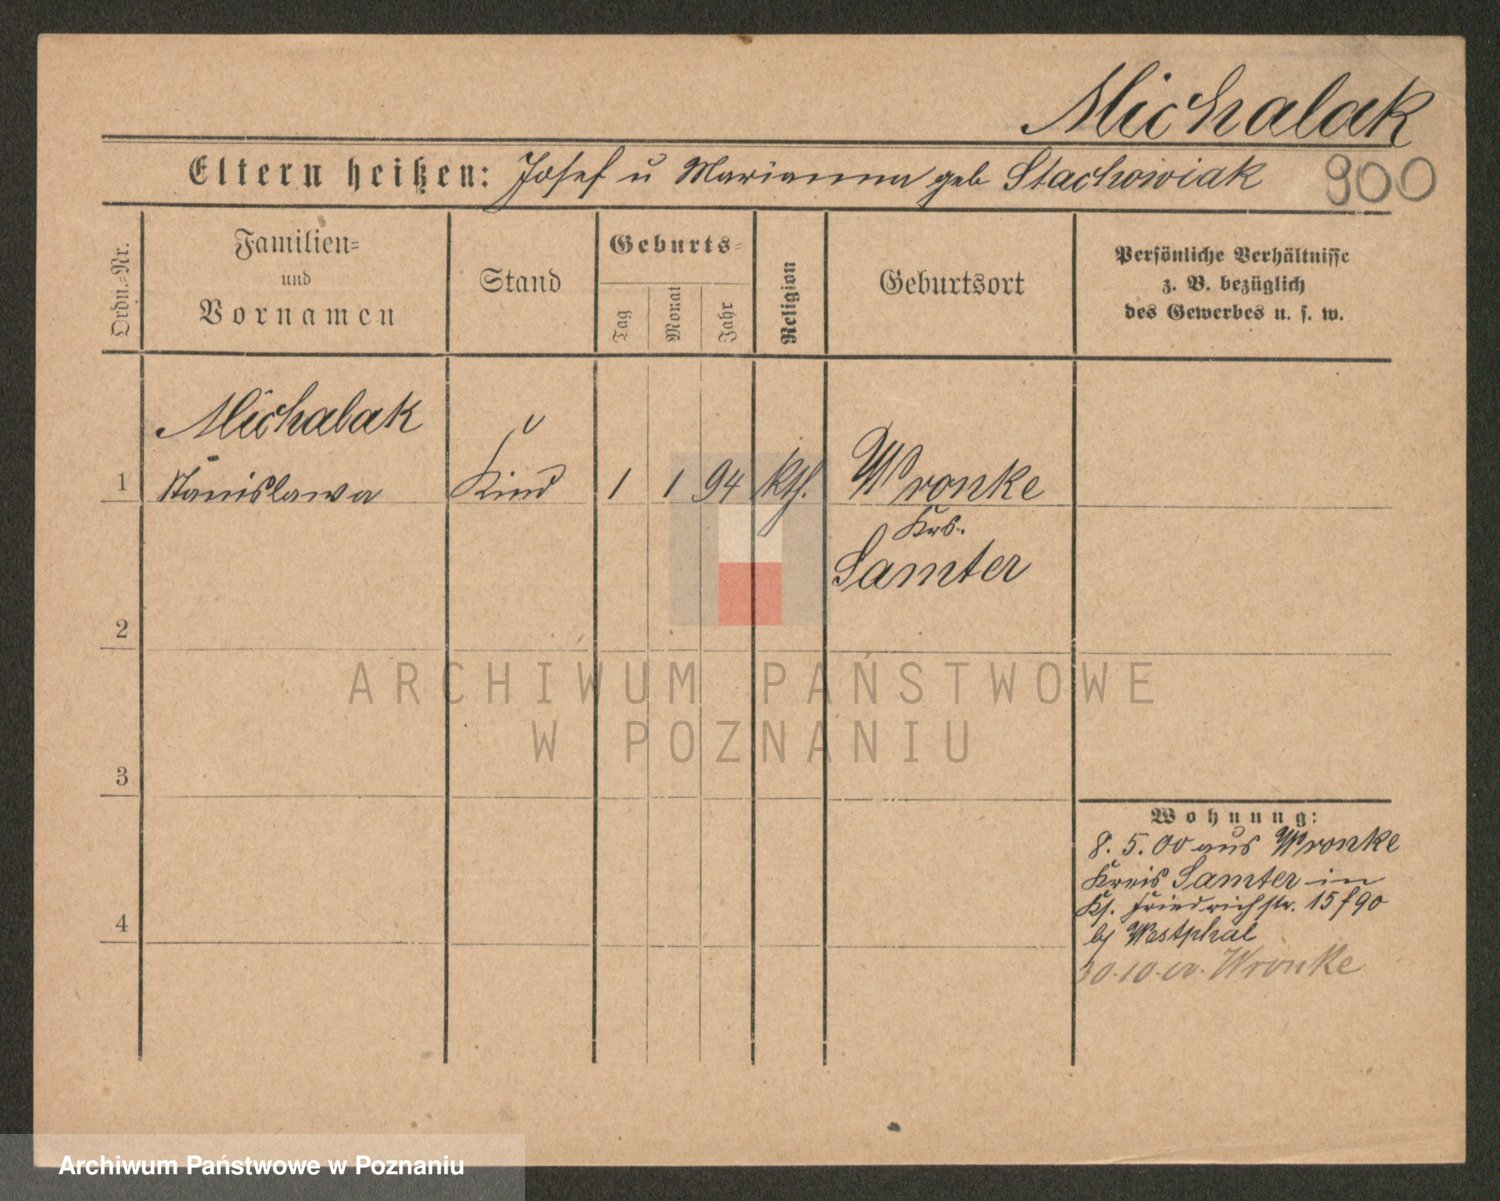 Michalak
Eltern heißen: Josef u Marianna geb Stachowiak 900
Ordn.=Nr.
Familien=
und
Vornamen
Stand
Geburts=
Tag
Monat
Jahr
Religion
Geburtsort
Persönliche Verhältnisse
z. B. bezüglich
des Gewerbes u. s. w.
Michalak
1 Stanislawa Kind 1 1 94 kth. Wronke
Krs.
Samter
2
ARCHIWUM PAŃSTWOWE
W POZNANIU
3
Wohnung:
8. 5. 00 aus Wronke
Kreis Samter in
Friedrichstr. 15
4
b/ Westphal
30.10.00. Wronke
Archiwum Państwowe w Poznaniu